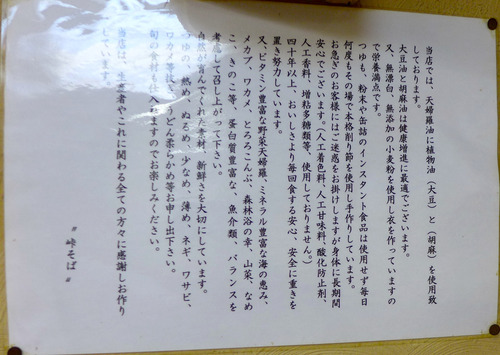 当店では、天婦羅油に植物油（大豆）と（胡麻）を使用致
しております。
大豆油と胡麻油は健康増進に最適でございます。
又、無漂白、無添加の小麦粉を使用し衣を作っていますの
で栄養満点です。
つゆも、粉末や缶詰のインスタント食品は使用せず毎日
何度もその場で本格削り節を使用し手作りしています。
お急ぎのお客様にはご迷惑をお掛けしますが身体に長期間
安心でございます。（人工着色料、人工甘味料、酸化防止剤、
人工香料、増粘多糖類等、使用しておりません。）
四十年以上、おいしさより毎回食する安心、安全に重きを
置き努力しています。
又、ビタミン豊富な野菜天婦羅、ミネラル豊富な海の恵み、
メカブ、ワカメ、とろろこんぶ、森林浴の幸、山菜、なめ
こ、きのこ等、蛋白質豊富な、魚介類、バランスを
考慮して召し上がって下さい。
自然が育んでくれた素材、新鮮さを大切にしています。
つゆの、熱め、ぬるめ、少なめ、薄め、ネギ、ワサビ、
ワカメ等抜き、うどん柔らかめ等お申し出下さい。
旬の食材も仕入れますのでお楽しみください。
当店は、生産者やこれに関わる全ての方々に感謝しお作り
しています。
〃峠そば〃